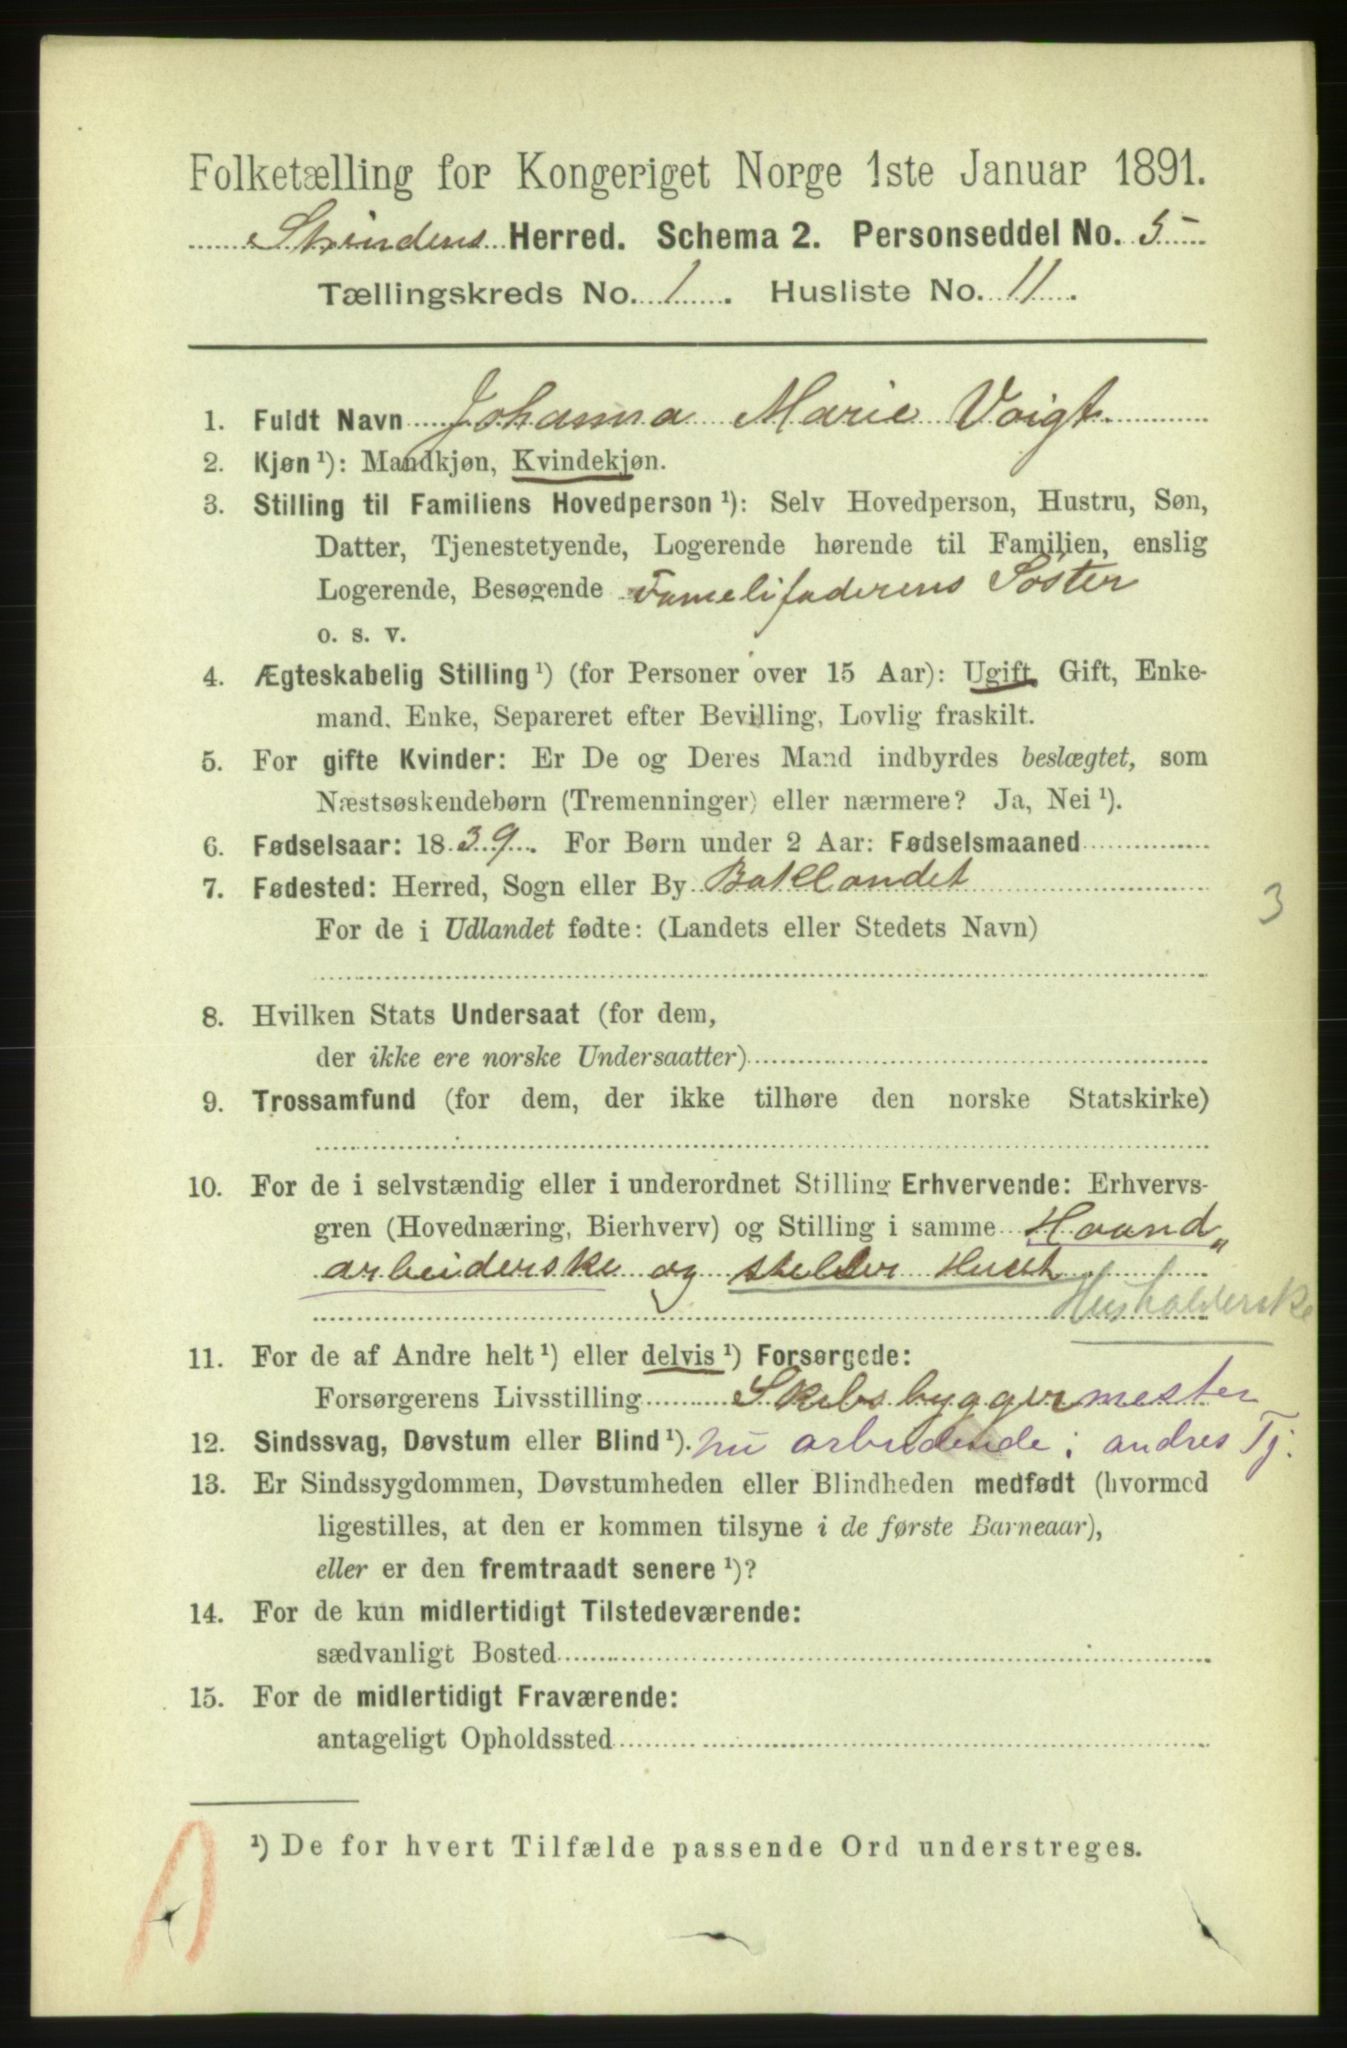 Folketælling for Kongeriget Norge 1ste Januar 1891.
Strindens Herred. Schema 2. Personseddel No. 5
Tællingskreds No. 1. Husliste No. 11.
1. Fuldt Navn Johanna Marie Voigt
2. Kjøn ¹): Mandkjøn, Kvindekjøn.
3. Stilling til Familiens Hovedperson ¹): Selv Hovedperson, Hustru, Søn,
Datter, Tjenestetyende, Logerende hørende til Familien, enslig
Logerende, Besøgende Famelifaderens Søster
o. s. v.
4. Ægteskabelig Stilling ¹) (for Personer over 15 Aar): Ugift, Gift, Enke-
mand, Enke, Separeret efter Bevilling, Lovlig fraskilt.
5. For gifte Kvinder: Er De og Deres Mand indbyrdes beslægtet, som
Næstsøskendebørn (Tremenninger) eller nærmere? Ja, Nei ¹).
6. Fødselsaar: 1839. For Børn under 2 Aar: Fødselsmaaned
7. Fødested: Herred, Sogn eller By Baklandet
3
For de i Udlandet fødte: (Landets eller Stedets Navn)
8. Hvilken Stats Undersaat (for dem,
der ikke ere norske Undersaatter)
9. Trossamfund (for dem, der ikke tilhøre den norske Statskirke)
10. For de i selvstændig eller i underordnet Stilling Erhvervende: Erhvervs-
gren (Hovednæring, Bierhverv) og Stilling i samme Haand„
arbeiderske og steller Huset
Husholderske
11. For de af Andre helt ¹) eller delvis ¹) Forsørgede:
Forsørgerens Livsstilling Skibsbyggermester
12. Sindssvag, Døvstum eller Blind ¹). nu arbeidende i andres Tj.
13. Er Sindssygdommen, Døvstumheden eller Blindheden medfødt (hvormed
ligestilles, at den er kommen tilsyne i de første Barneaar),
eller er den fremtraadt senere ¹)?
14. For de kun midlertidigt Tilstedeværende:
sædvanligt Bosted
15. For de midlertidigt Fraværende:
antageligt Opholdssted
¹) De for hvert Tilfælde passende Ord understreges.